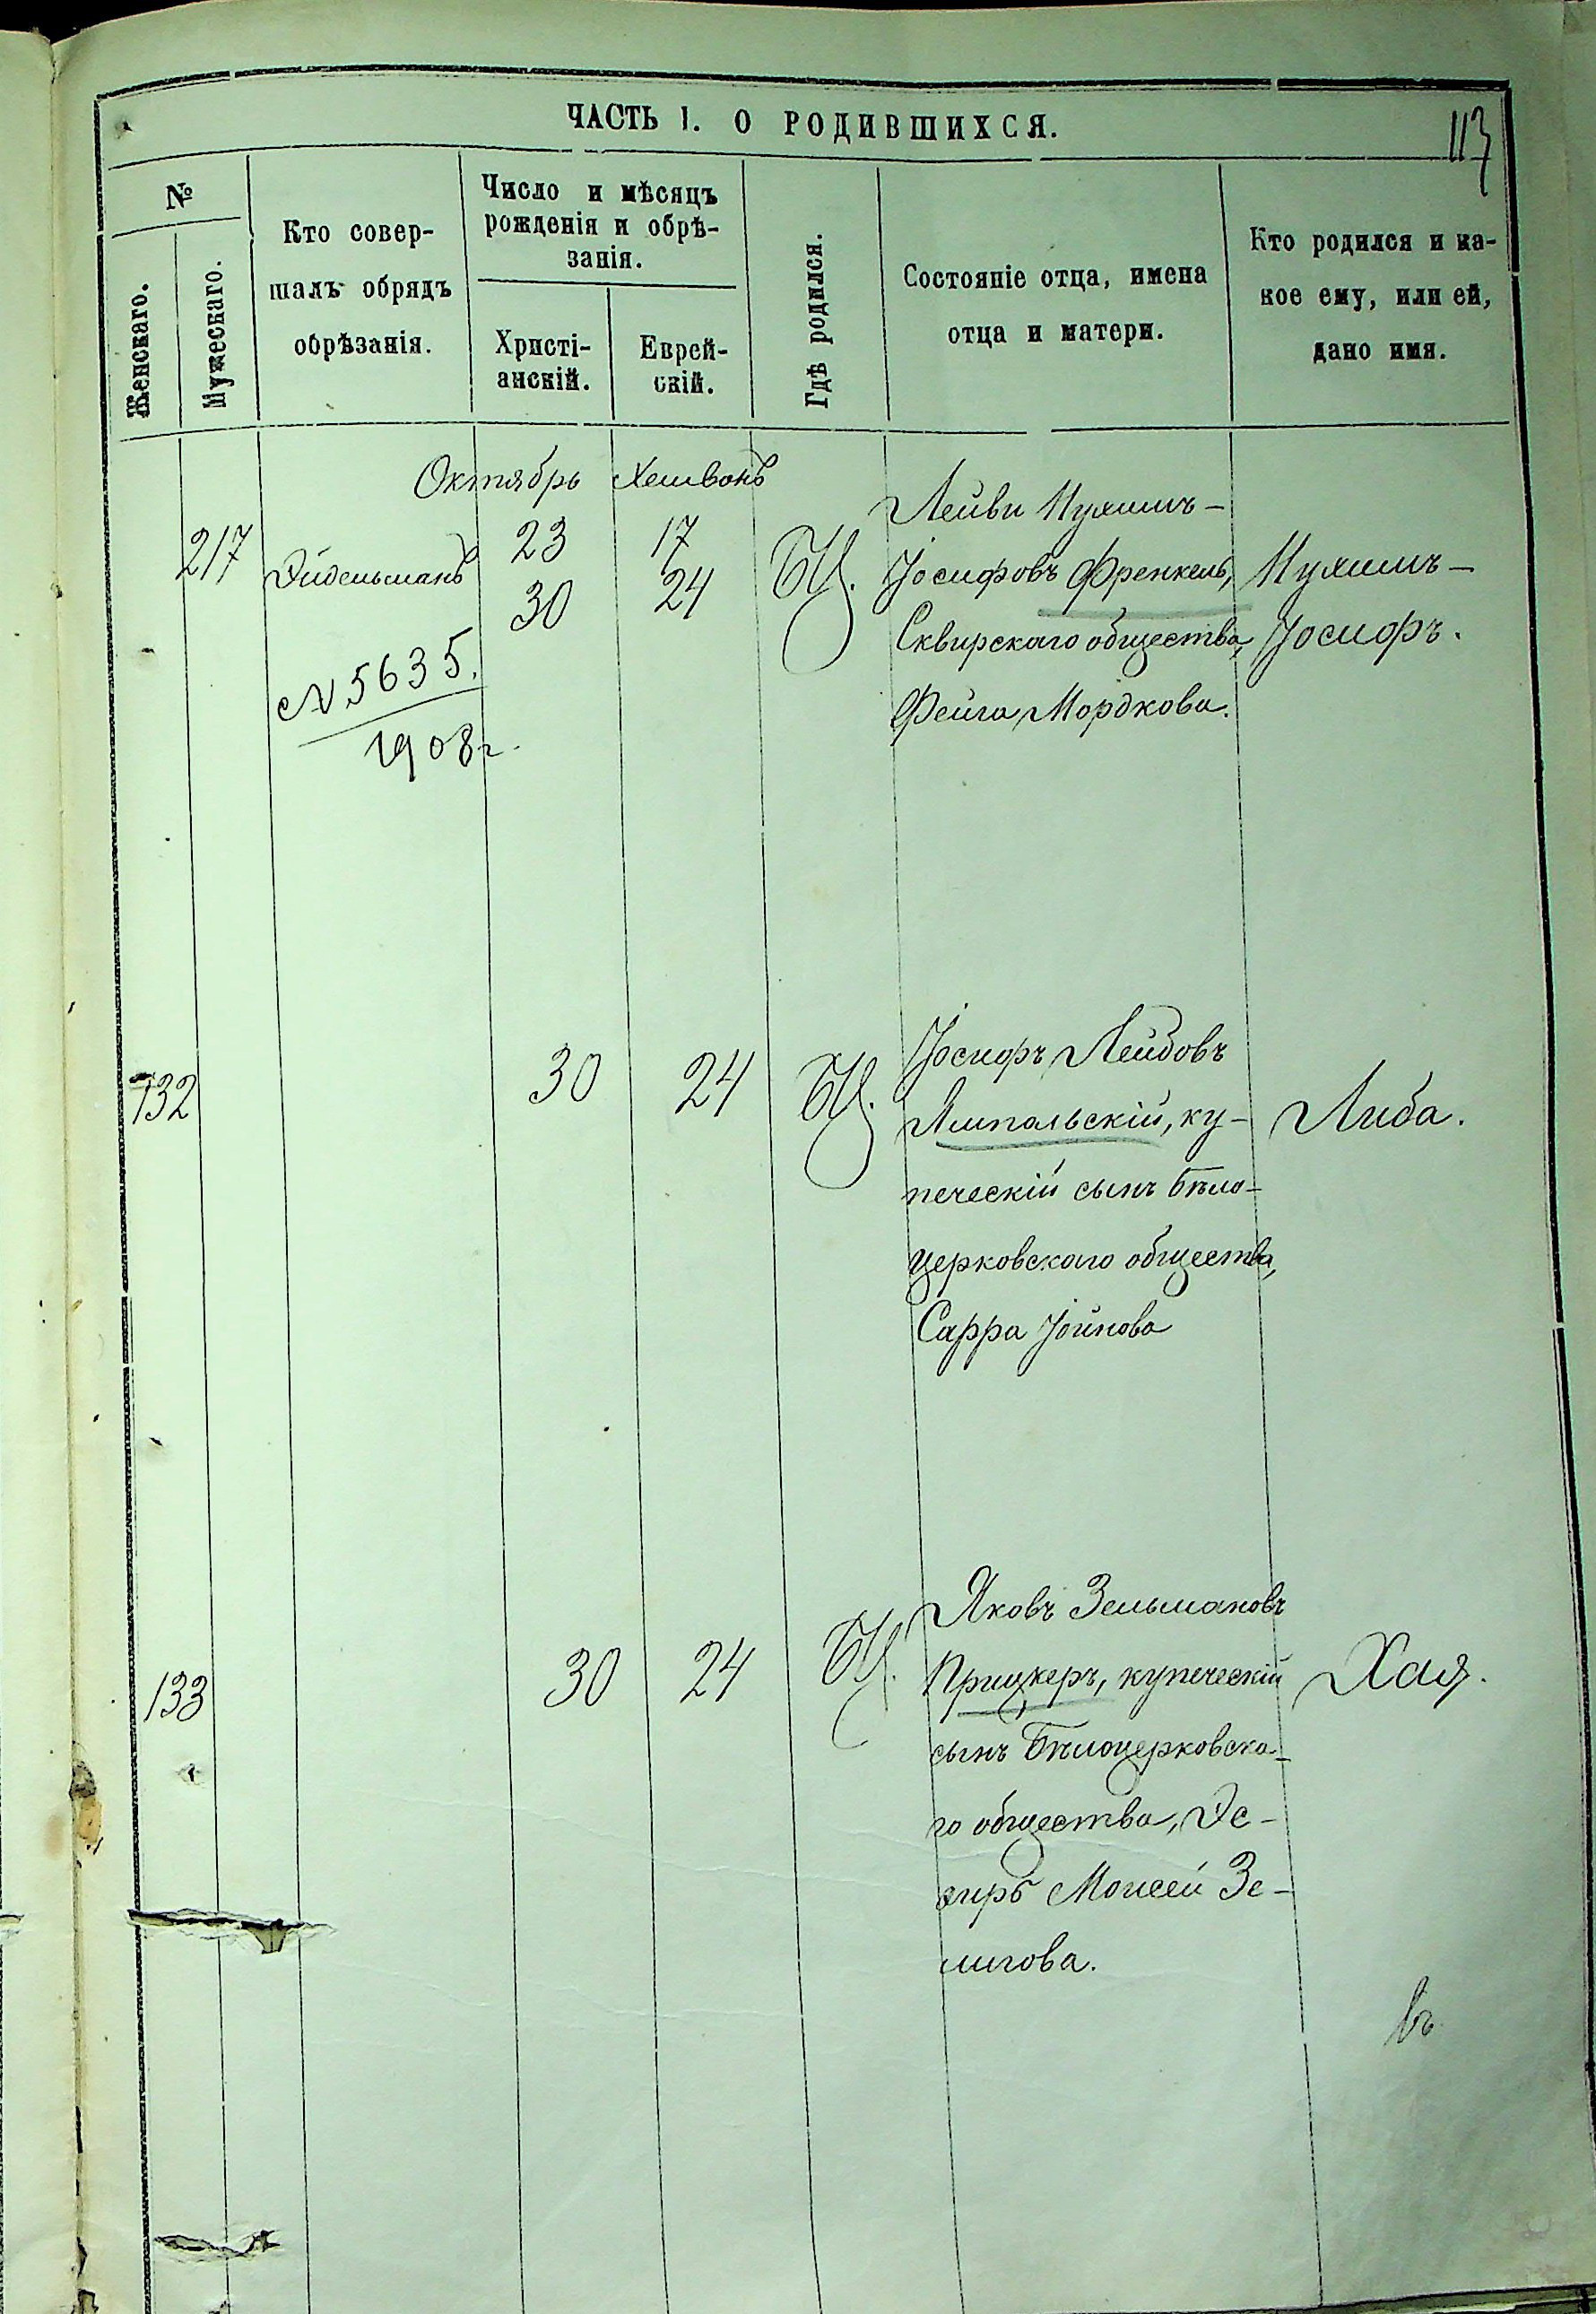 ЧАСТЬ I. О РОДИВШИХСЯ.
113
№
Женскаго.
Мужескаго.
Кто совер-
шалъ обрядъ
обрѣзанія.
Число и мѣсяцъ
рожденія и обрѣ-
занія.
Христі-
анскій.
Еврей-
скій.
Гдѣ родился.
Состояніе отца, имена
отца и матери.
Кто родился и ка-
кое ему, или ей,
дано имя.
Октябрь Хешвонъ
217
Эйдельманъ
23 17
30 24
БЦ.
Лейви Нухимъ-
Іосифовъ Френкель,
Сквирскаго общества,
Фейга Мордкова.
Нухимъ-
Іосифъ.
№ 5635.
1908 г.
132
30 24
БЦ.
Іосифъ Лейбовъ
Ямпольскій, ку-
печескій сынъ Бѣло-
церковскаго общества,
Сарра Іойнова
Либа.
133
30 24
БЦ.
Яковъ Зельмановъ
Прицкеръ, купеческій
сынъ Бѣлоцерковска-
го общества, Эс-
ѳирь Моисей Зе-
лигова.
Хая.
въ